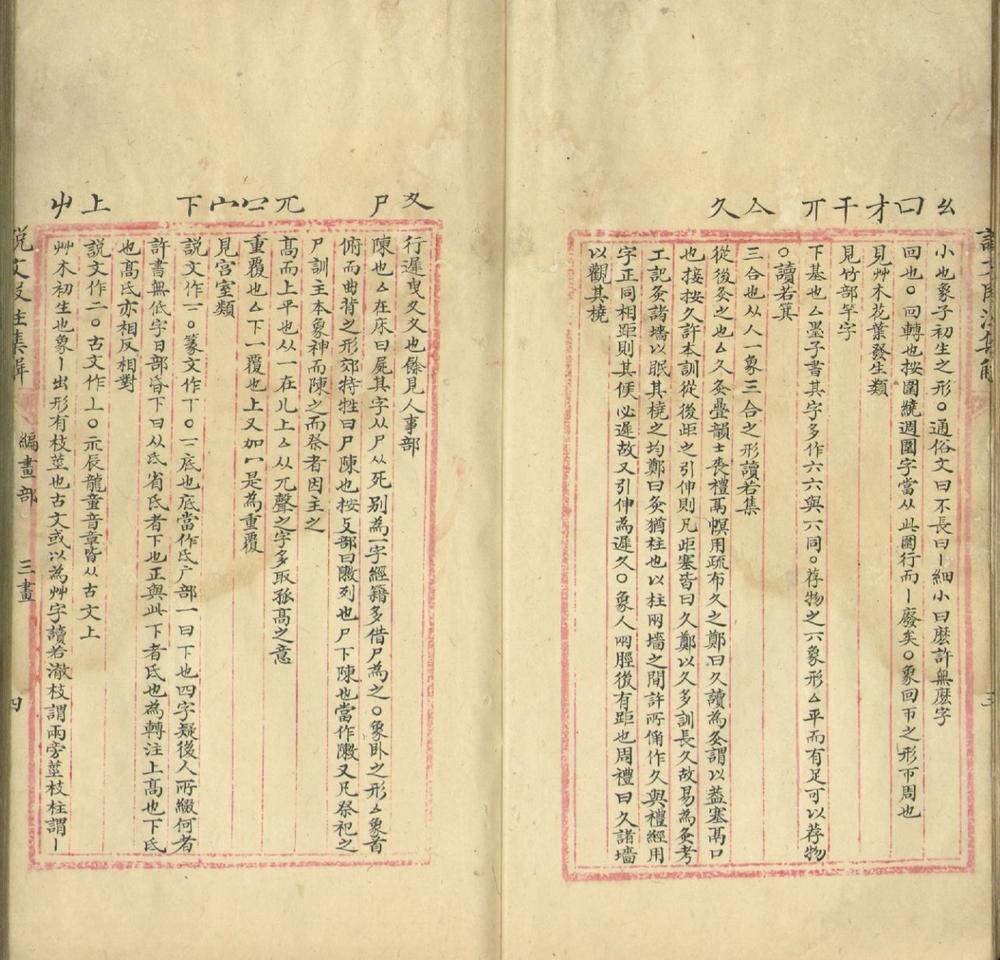 幺囗才干丌亼久
小也象子初生之形○通俗文曰不長曰丨細小曰麽許無麽字
回也○回轉也按圍繞週圍字當从此圍行而丨廢矣○象回帀之形帀周也
見艸木花葉發生類
見竹部竿字
下基也△墨子書其字多作亣亣與丌同○荐物之丌象形△平而有足可以荐物
○讀若箕
三合也从人一象三合之形讀若集
從後灸之也△久灸疊韻士喪禮鬲幎用疏布久之鄭曰久讀為灸謂以蓋塞鬲口
也接按久許本訓從後距之引伸則凡距塞皆曰久鄭以久多訓長久故易為灸考
工記灸諸墻以眂其橈之均鄭曰灸猶柱也以柱兩墻之間許所偁作久與禮經用
字正同相距則其候必遲故又引伸為遲久○象人兩脛後有距也周禮曰久諸墻
以觀其橈
夊尸兀冖宀下上屮
行遲曳夊夊也餘見人事部
陳也△在床曰屍其字从尸从死别為一字經籍多借尸為之○象卧之形△象首
俯而曲背之形郊特牲曰尸陳也按攴部曰敶列也尸下陳也當作敶又凡祭祀之
尸訓主本象神而陳之而祭者因主之
髙而上平也从一在儿上△从兀聲之字多取孤髙之意
重覆也△下一覆也上又加冖是為重覆
見宫室類
說文作二○篆文作丅○二底也底當作氐广部一曰下也四字疑後人所綴何者
許書無低字日部昏下曰从氐省氐者下也正與此下者氐也為轉注上髙也下氐
也髙氐亦相反相對
說文作二○古文作丄○示辰龍童音章皆从古文上
艸木初生也象丨出形有枝莖也古文或以為艸字讀若澈枝謂兩旁莖枝柱謂丨
說文段注集解
編畫部
三畫
四